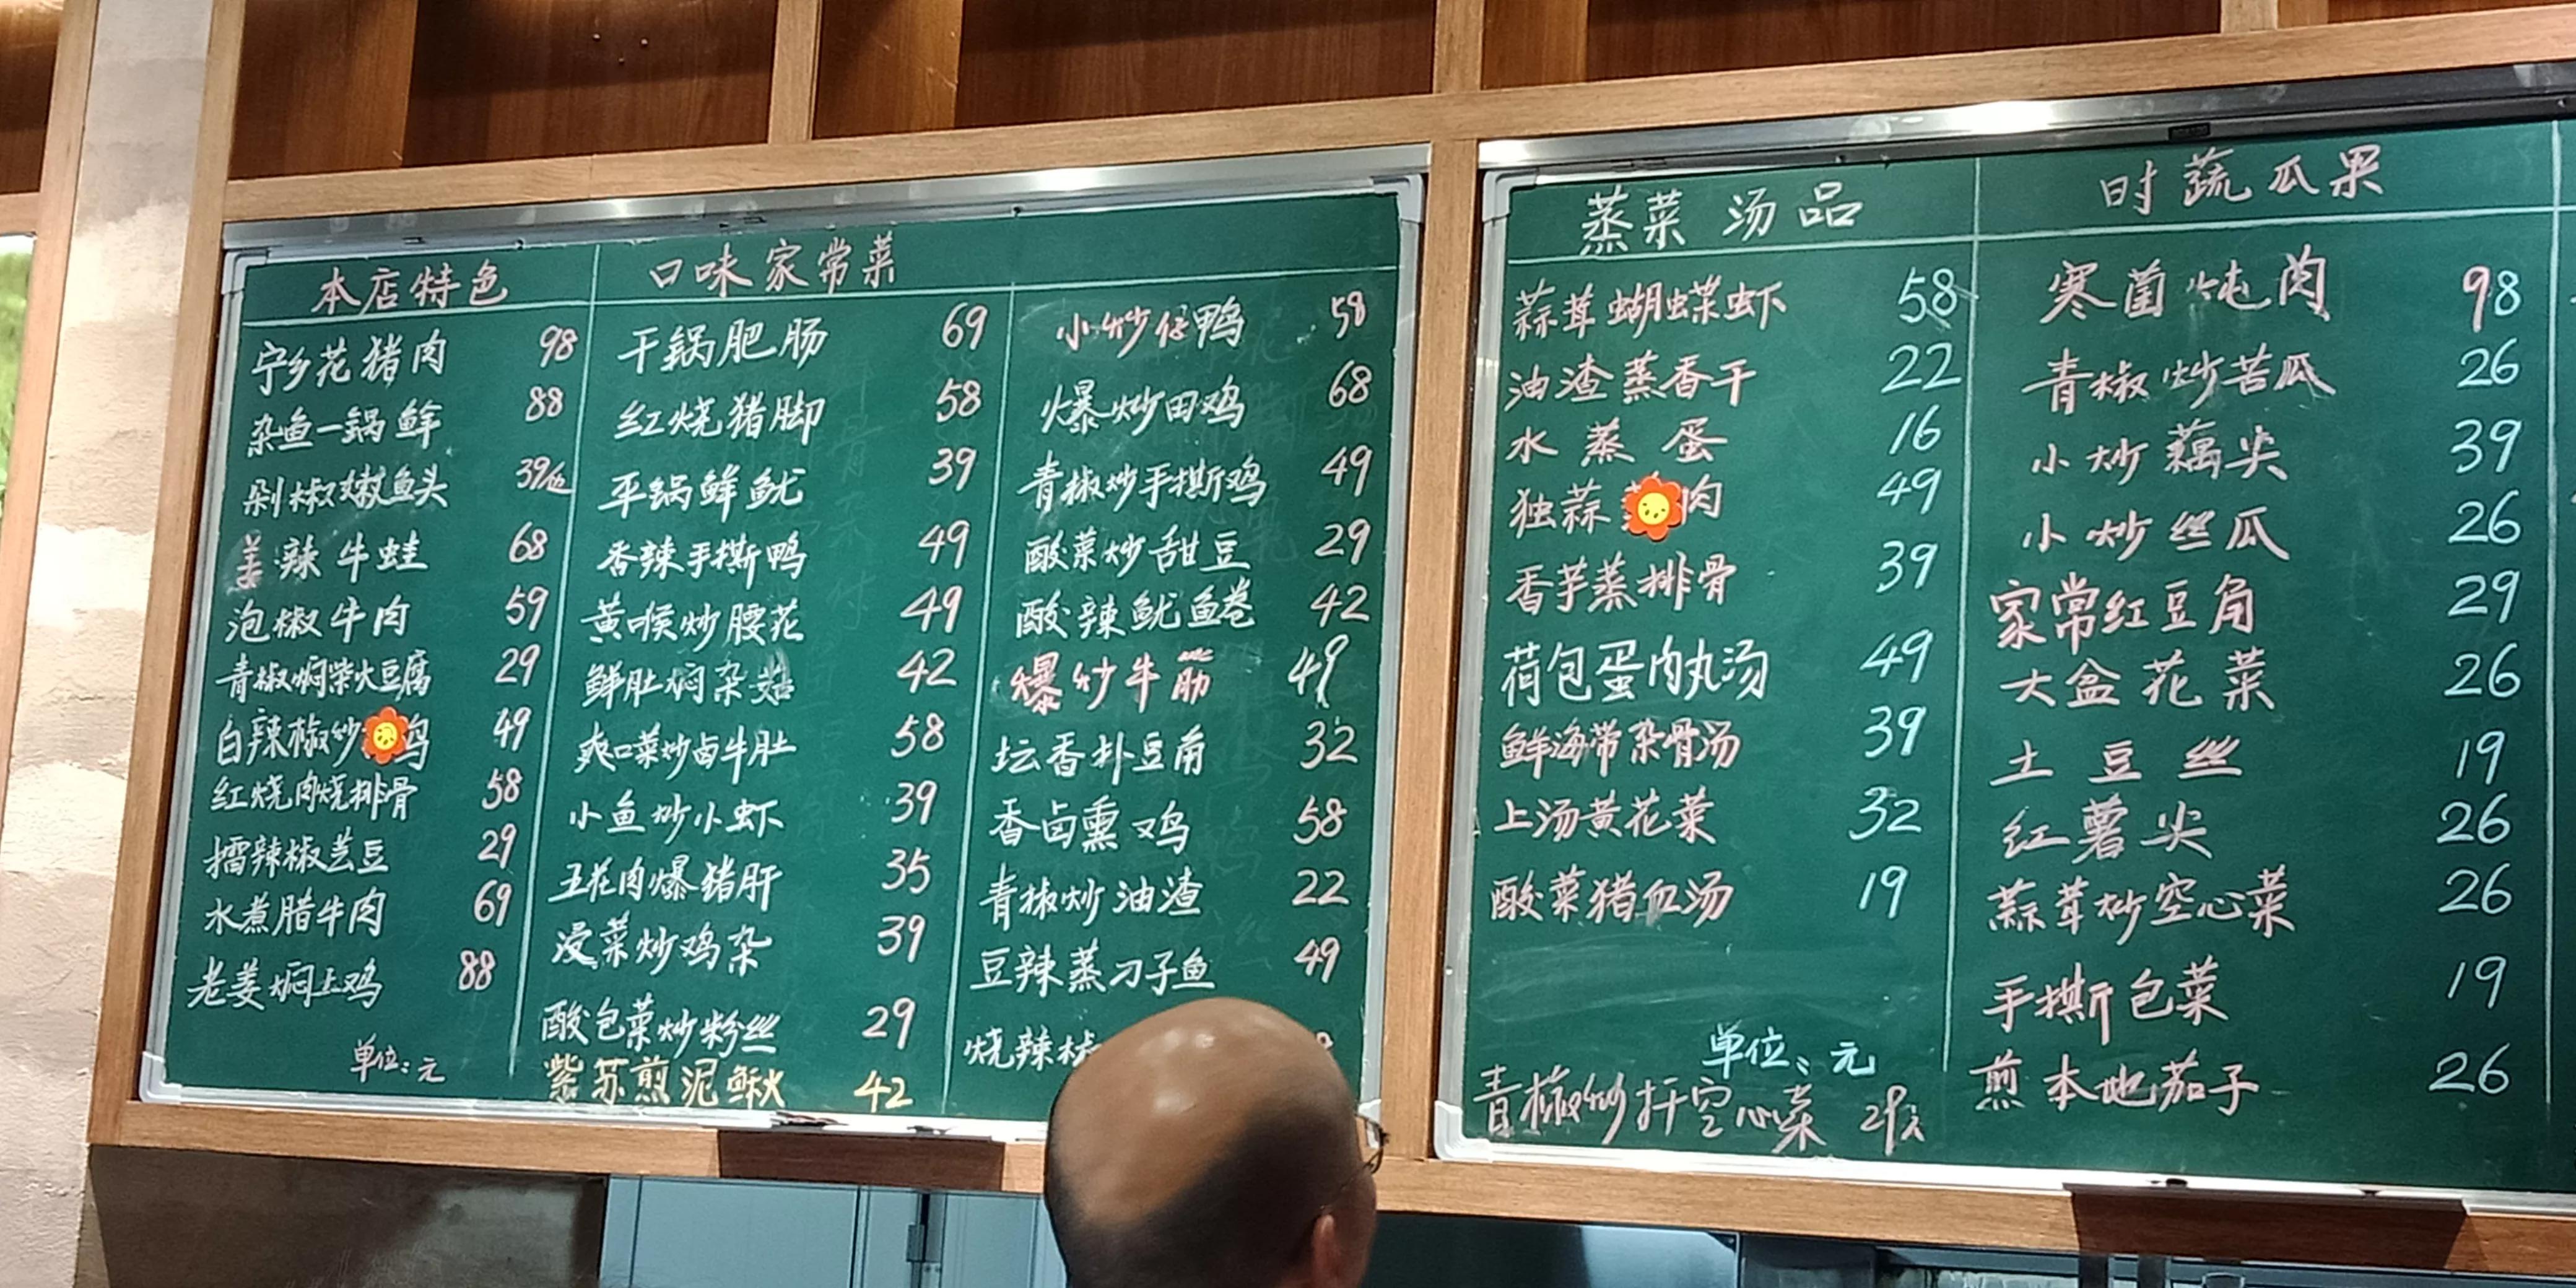 本店特色
宁乡花猪肉 98
杂鱼一锅鲜 88
剁椒嫩鱼头 39/
姜辣牛蛙 68
泡椒牛肉 59
青椒焖柴火豆腐 29
白辣椒炒 鸡 49
红烧肉烧排骨 58
擂辣椒芸豆 29
水煮腊牛肉 69
老姜焖土鸡 88
单位：元
口味家常菜
干锅肥肠 69
红烧猪脚 58
平锅鲜鱿 39
香辣手撕鸭 49
黄喉炒腰花 49
鲜肚焖杂菇 42
爽口菜炒卤牛肚 58
小鱼炒小虾 39
五花肉爆猪肝 35
浸菜炒鸡杂 39
酸包菜炒粉丝 29
紫苏煎泥鳅 42
小炒仔鸭 58
爆炒田鸡 68
青椒炒手撕鸡 49
酸菜炒甜豆 29
酸辣鱿鱼卷 42
爆炒牛筋 49
坛香扑豆角 32
香卤熏鸡 58
青椒炒油渣 22
豆辣蒸刁子鱼 49
烧辣
蒸菜汤品
蒜茸蝴蝶虾 58
油渣蒸香干 22
水蒸蛋 16
独蒜 肉 49
香芋蒸排骨 39
荷包蛋肉丸汤 49
鲜海带杂骨汤 39
上汤黄花菜 32
酸菜猪血汤 19
单位：元
青椒炒扦空心菜 29元
时蔬瓜果
寒菌炖肉 98
青椒炒苦瓜 26
小炒藕尖 39
小炒丝瓜 26
家常红豆角 29
大盆花菜 26
土豆丝 19
红薯尖 26
蒜茸炒空心菜 26
手撕包菜 19
煎本地茄子 26